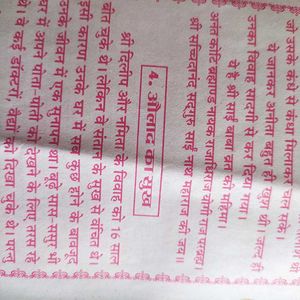 जो उसके कंधे से कंधा मिलाकर चल सके।
ये जानकर अनीता बहुत ही खुश थी। जल्द ही
उनका शादी से कर दिया गया।
ये है श्री साईं बाबा ज्ञान की महिमा।
अनंत कोटि ब्रह्माण्ड नायक राजाधिराज योगी राज परब्रह्म।
श्री सच्चिदानंद सद्गुरु साईं नाथ महाराज की जय ॥
4. औलाद का सुख
श्री दिलीप और नमिता के विवाह को 16 साल
बीत चुके थे लेकिन वे संतान के सुख से वंचित थे
इसी कारण उनके घर में सब कुछ होने के बावजूद
उनके जीवन में एक सूनापन था। सास ससुर भी
बस अपने पोता-पोती को देखने के लिए तरस रहे
थे। वे कई डाक्टरों, वैद्यों को दिखा चुके थे परन्तु